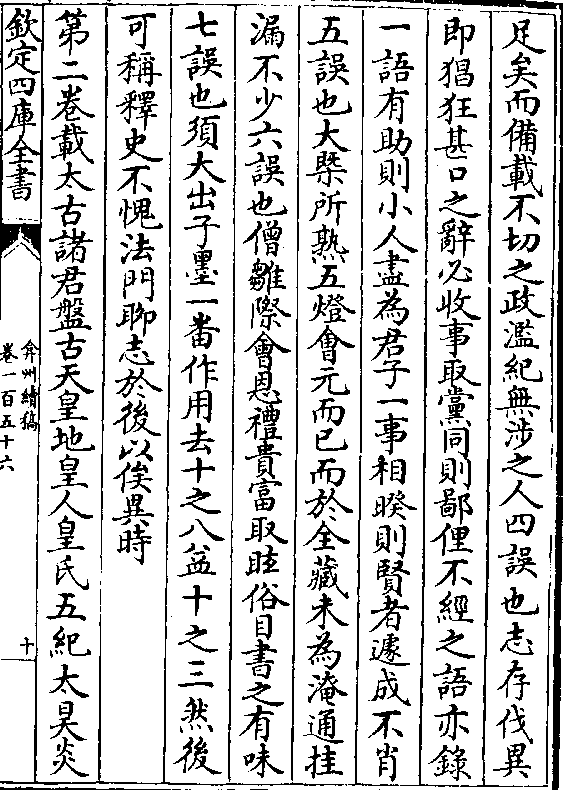 足矣而備載不切之政濫紀無渉之人四誤也志存伐異
即猖狂甚口之辭必收事取黨同則鄙俚不經之語亦錄
一語有助則小人盡為君子一事相暌則賢者遽成不肖
五誤也大槩所熟五燈會元而已而於全藏未為淹通挂
漏不少六誤也僧雖際會恩禮貴富取眩俗目書之有味
七誤也須大出子墨一畨作用去十之八益十之三然後
可稱釋史不愧法門聊志於後以俟異時
第二卷載太古諸君盤古天皇地皇人皇氏五紀太昊炎
欽定四庫全書
弇州續稿
卷一百五十六
十